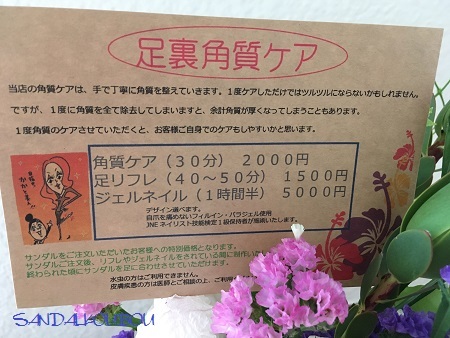 足裏角質ケア
当店の角質ケアは、手で丁寧に角質を整えていきます。1度ケアしただけではツルツルにならないかもしれません。
ですが、1度に角質を全て除去してしまいますと、余計角質が厚くなってしまうこともあります。
1度角質のケアさせていただくと、お客様ご自身でのケアもしやすいかと思います。
角質ケア(30分) 2000円
足リフレ(40~50分) 1500円
ジェルネイル(1時間半) 5000円
デザイン選べます。
自爪を痛めないフィルイン・パラジェル使用
JNEネイリスト技能検定1級保持者が施術いたします。
サンダルをご注文いただいたお客様への特別価格となります。
サンダルご注文後、リフレやジェルネイルをされている間に
終わられた頃にサンダルを足に合わせさせていただけます。
水虫の方はご利用できません。
皮膚疾患の方は医師とご相談の上、ご利用